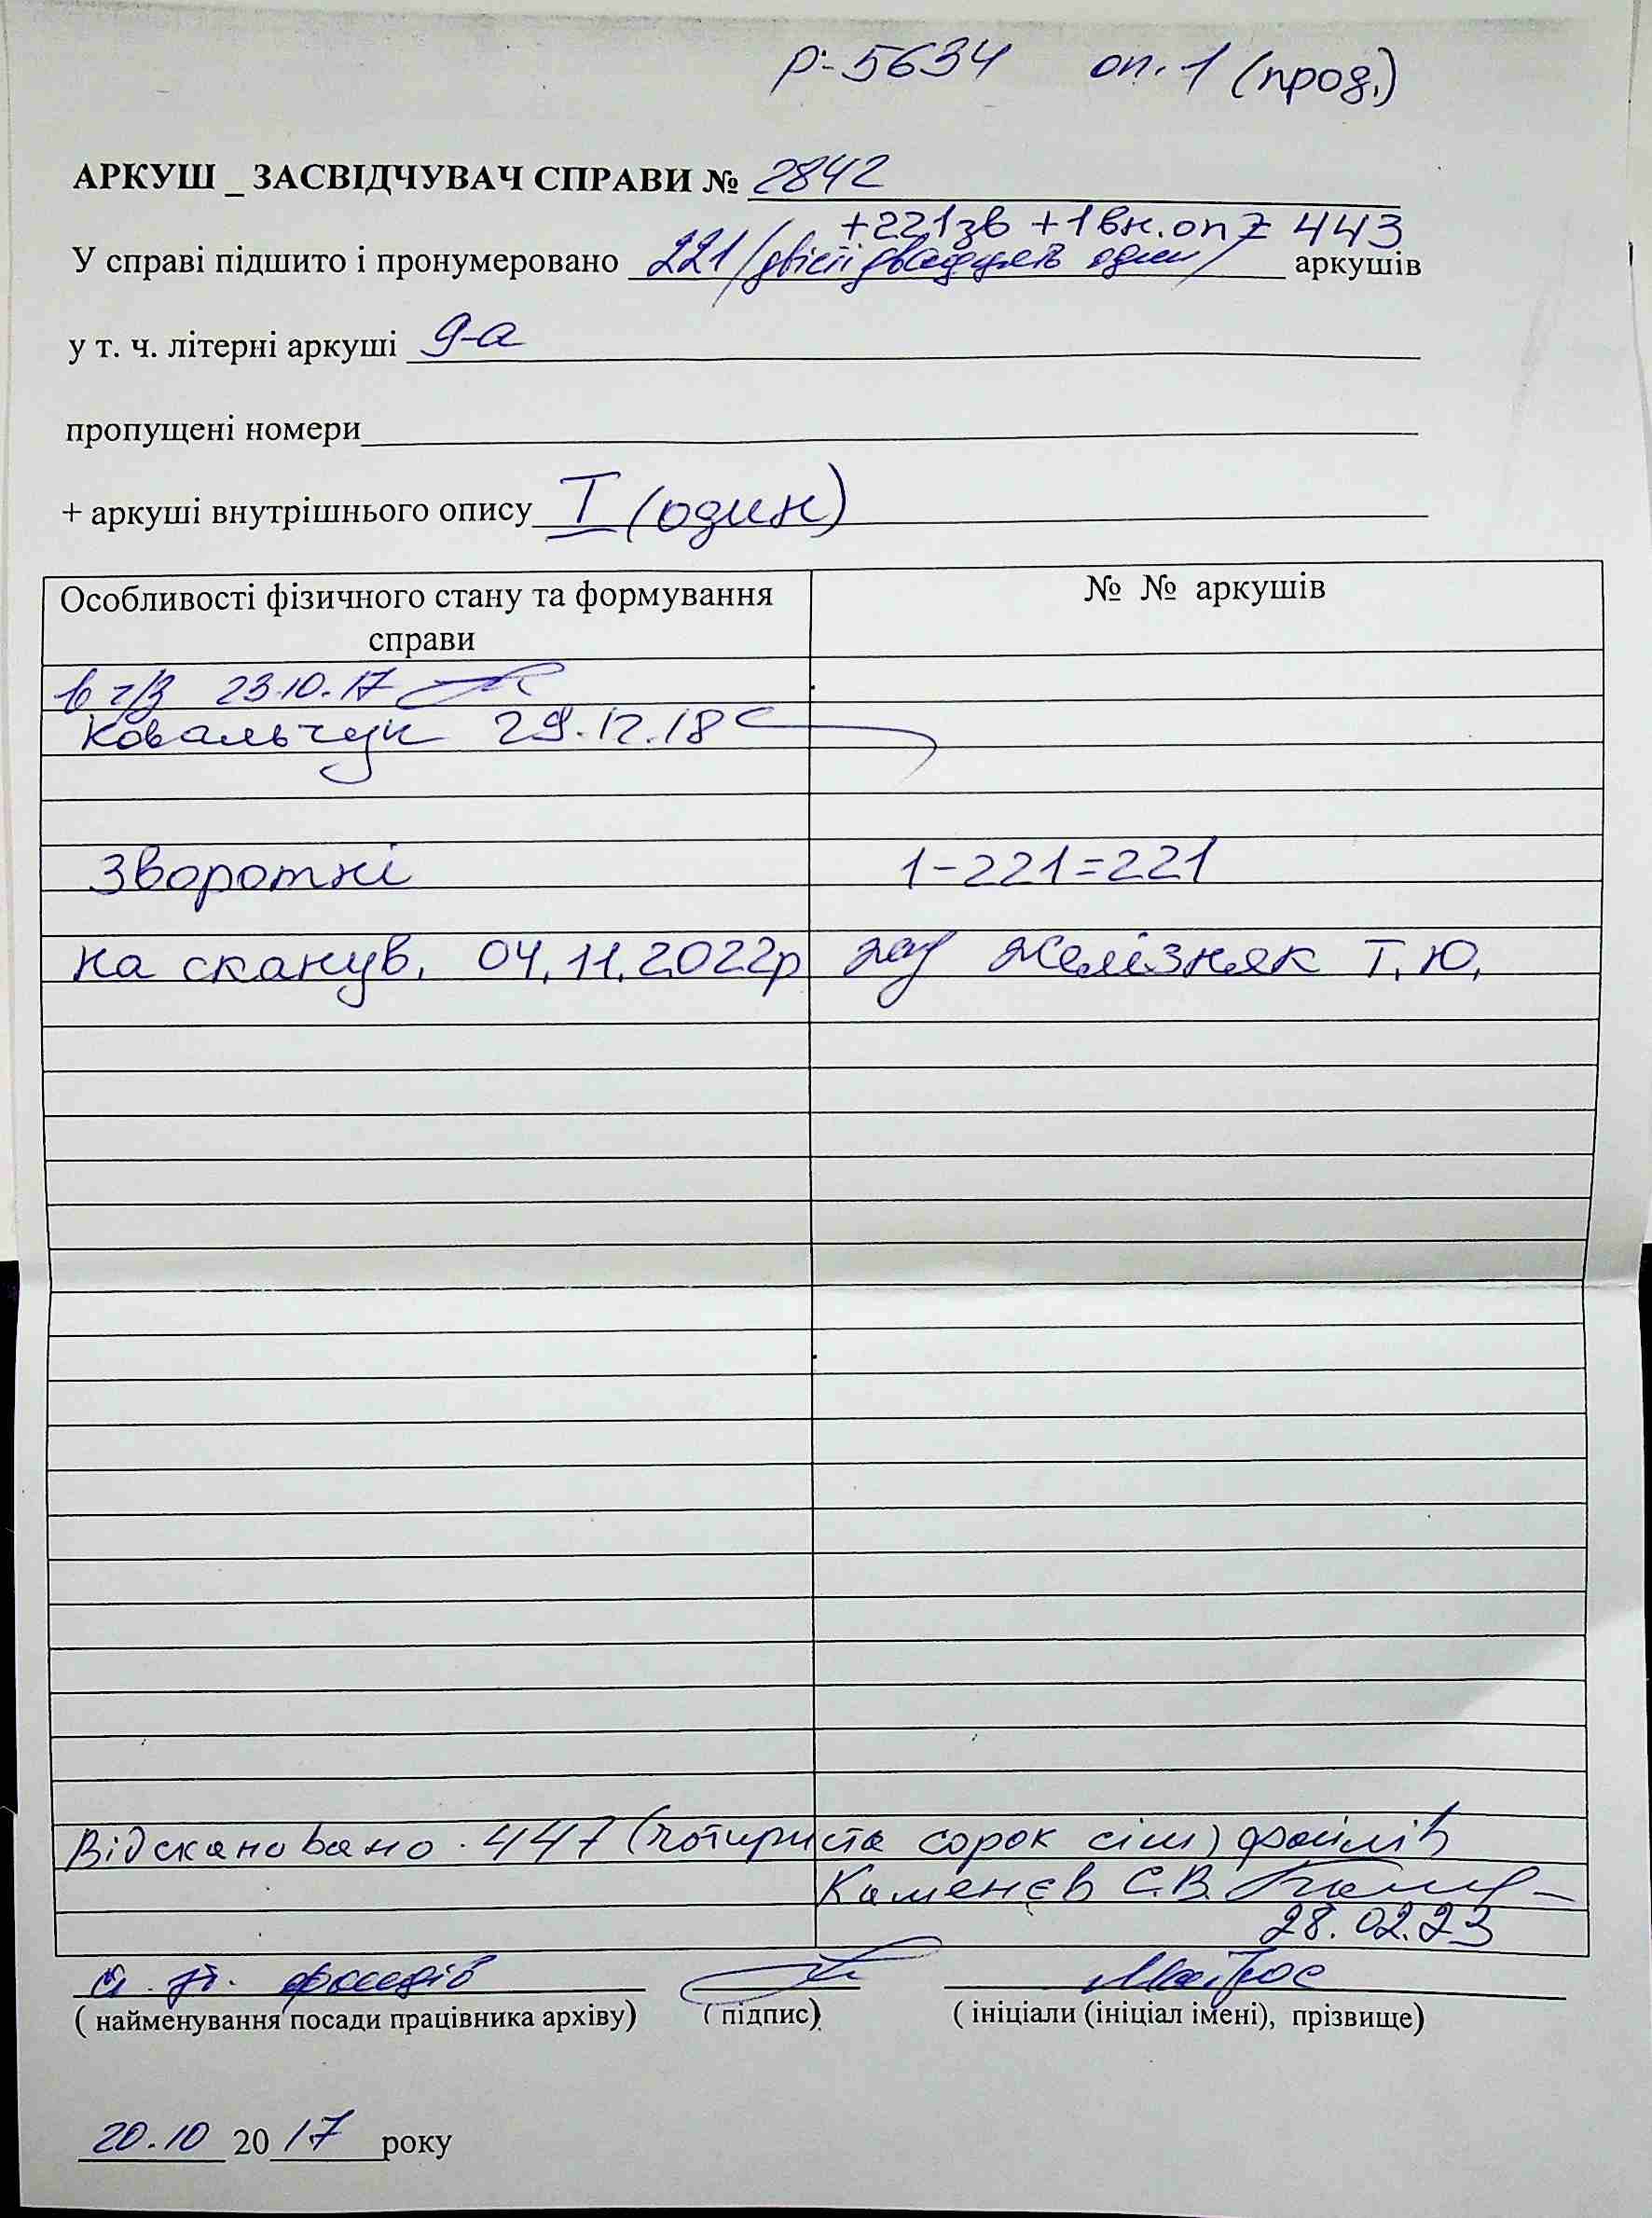 р-5634 оп. 1 (прод.)
АРКУШ _ ЗАСВІДЧУВАЧ СПРАВИ № 2842
+221зв +1вн.оп = 443
У справі підшито і пронумеровано 221 (двісті двадцять один) аркушів
у т. ч. літерні аркуші 9-а
пропущені номери
+ аркуші внутрішнього опису I (один)
Особливості фізичного стану та формування справи
№ № аркушів
23.10.17
Ковальчук 29.12.18
Зворотні 1-221=221
на сканув. 04.11.2022р Желізняк Т.Ю.
Відскановано 447 (чотириста сорок сім) файлів
Каменєв С.В.
28.02.23
фондів
( найменування посади працівника архіву) ( підпис) ( ініціали (ініціал імені), прізвище)
20.10 2017 року